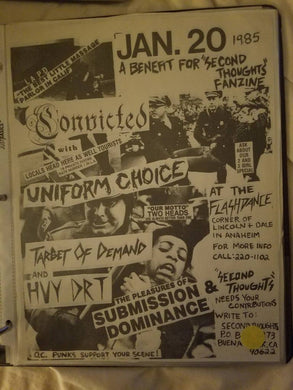 JAN. 20 1985
A BENEFIT FOR "SECOND THOUGHTS" FANZINE
L.A.P.D.
"THE BEST LITTLE MASSAGE
PARLOR IN CALIF."
Convicted
with
LOCALS HEAD HERE AS WELL TOURISTS
ASK
ABOUT
OUR
2 AND 3
GIRL
SPECIAL
UNIFORM CHOICE
"OUR MOTTO"
TWO HEADS
AT THE
FLASHDANCE
CORNER OF
LINCOLN + DALE
IN ANAHEIM
FOR MORE INFO
CALL: 220-1102
TARGET OF DEMAND
AND
HVY DRT
THE PLEASURES OF
SUBMISSION &
DOMINANCE
"SECOND
THOUGHTS"
NEEDS YOUR
CONTRIBUTIONS
WRITE TO:
SECOND THOUGHTS
P.O. B 73
BUENA CA
90622
O.C. PUNKS SUPPORT YOUR SCENE!